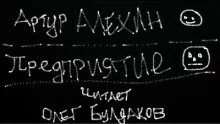 Артур АЛЕХИН
Предприятие
ЧИТАЕТ
ОЛЕГ БУЛДАКОВ